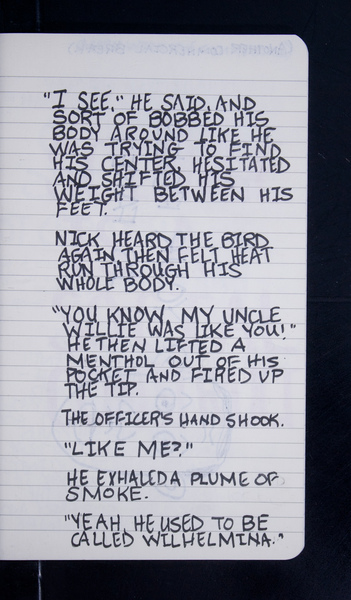 "I SEE," HE SAID, AND
SORT OF BOBBED HIS
BODY AROUND LIKE HE
WAS TRYING TO FIND
HIS CENTER, HESITATED
AND SHIFTED HIS
WEIGHT BETWEEN HIS
FEET.
NICK HEARD THE BIRD
AGAIN, THEN FELT HEAT
RUN THROUGH HIS
WHOLE BODY.
"YOU KNOW, MY UNCLE
WILLIE WAS LIKE YOU!"
HE THEN LIFTED A
MENTHOL OUT OF HIS
POCKET AND FIRED UP
THE TIP.
THE OFFICER'S HAND SHOOK.
"LIKE ME?"
HE EXHALED A PLUME OF
SMOKE.
"YEAH, HE USED TO BE
CALLED WILHELMINA."